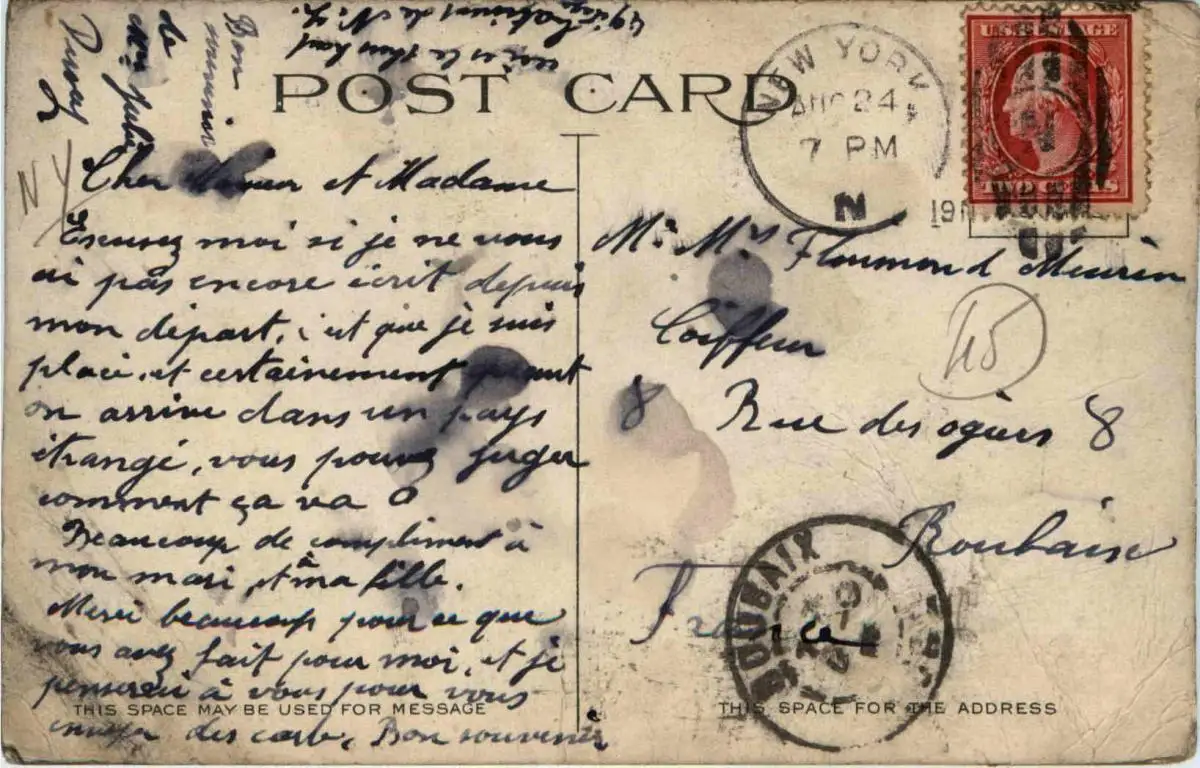 voici le plus haut
de N.Y.
Bon
souvenir
de
Duvoy
POST CARD
NEW YORK, N
AUG 24
7 PM
19
N
U.S. POSTAGE
TWO CENTS
NY
Cher et Madame
Escusez moi si je ne vous
ai pas encore écrit depuis
mon départ, c'et que je suis
placé, et certainement quant
on arrive dans un pays
étrangé, vous pouvez juger
comment ça va
Beaucoup de compliment à
mon mari, et à ma fille.
Merci beaucoup pour ce que
vous avez fait pour moi, et je
penserai à vous pour vous
envoyer des carte, Bon souvenir
THIS SPACE MAY BE USED FOR MESSAGE
Mr Mrs Floumond Meurin
Coiffeur
45
8 Rue des ogiers 8
Roubaix
France
ROUBAIX
THIS SPACE FOR THE ADDRESS